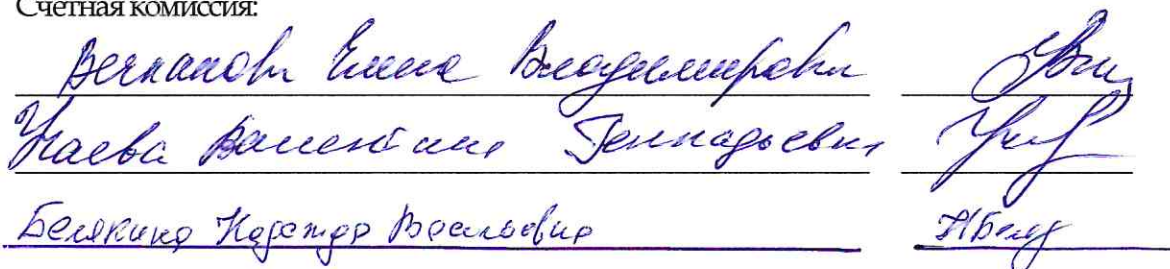 Счетная комиссия:
Елена Владимировна
Валентина Геннадьевна
Белякина Надежда Васильевна